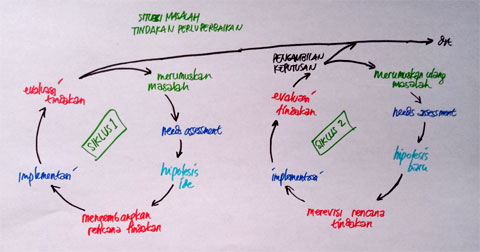 SITUASI MASALAH
TINDAKAN PERLU PERBAIKAN
dst
PENGAMBILAN
KEPUTUSAN
merumuskan
masalah
needs assessment
hipotesis
ide
mengembangkan
rencana tindakan
implementasi
evaluasi
tindakan
SIKLUS 1
merumuskan ulang
masalah
needs assessment
hipotesis
baru
merevisi rencana
tindakan
implementasi
evaluasi
tindakan
SIKLUS 2